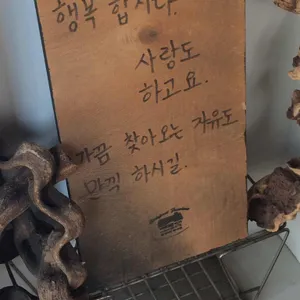 행복 합시다.
사랑도
하고요.
가끔 찾아오는 자유도
만끽 하시길.